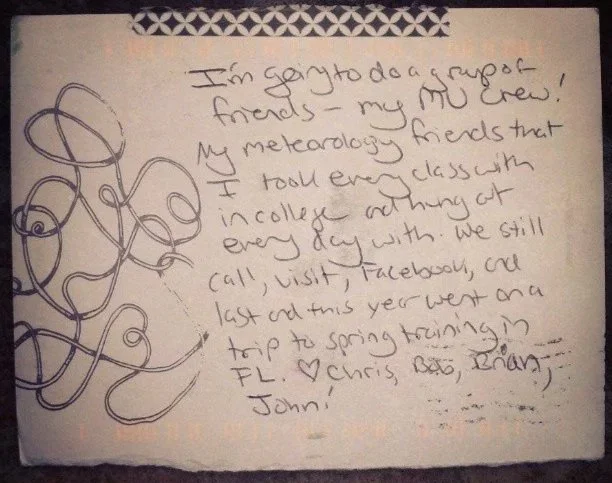 I'm going to do a group of
friends - my MU Crew!
My meteorology friends that
I took every class with
in college and hung out
every day with. We still
call, visit, Facebook, and
last and this year went on a
trip to spring training in
FL. ♡ Chris, Bob, Brian,
John!